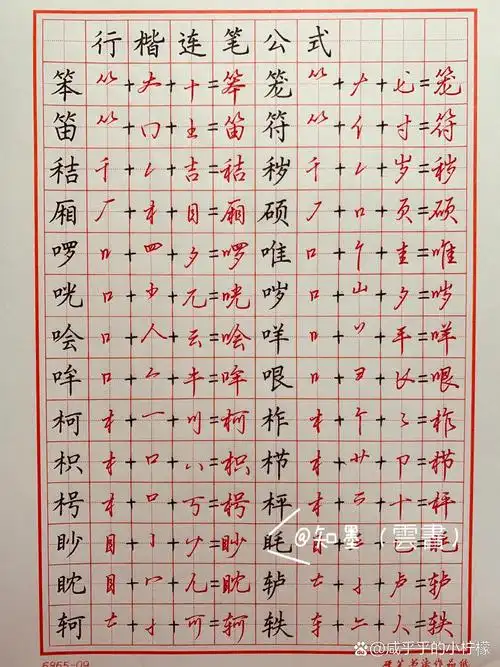 行楷连笔公式
笨 ⺮+𠂇+十=笨 笼 ⺮+𠂇+匕=笼
笛 ⺮+冂+土=笛 符 ⺮+亻+寸=符
秸 千+㇀+吉=秸 秽 千+㇀+岁=秽
厢 厂+木+目=厢 硕 丆+口+页=硕
啰 口+罒+夕=啰 唯 口+亻+圭=唯
咣 口+⺌+兀=咣 哕 口+山+夕=哕
哙 口+人+云=哙 咩 口+丷+羊=咩
哞 口+厶+牛=哞 哏 口+彐+=哏
柯 木+一+=柯 柞 木+𠂉+=柞
枳 木+口+八=枳 栉 木+艹+卩=栉
枵 木+口+丂=枵 枰 木++十=枰
眇 目+亅+=眇 眊 目
眈 目+冖+儿=眈 轳 +卢=轳
轲 +可=轲 轶 车++人=轶
@知墨(雲書)
6965-09
硬笔书法作品纸
@咸乎乎的小柠檬